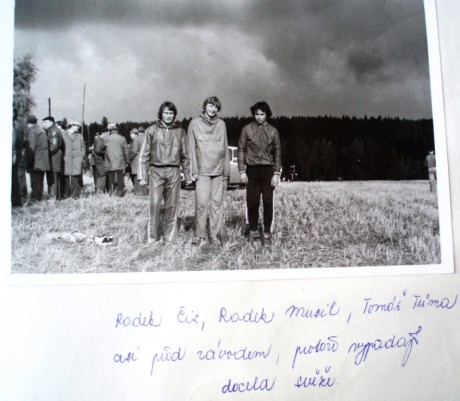 Radek Eis, Radek Musil, Tomáš Tůma
asi před závodem, protože vypadají
docela svěží.